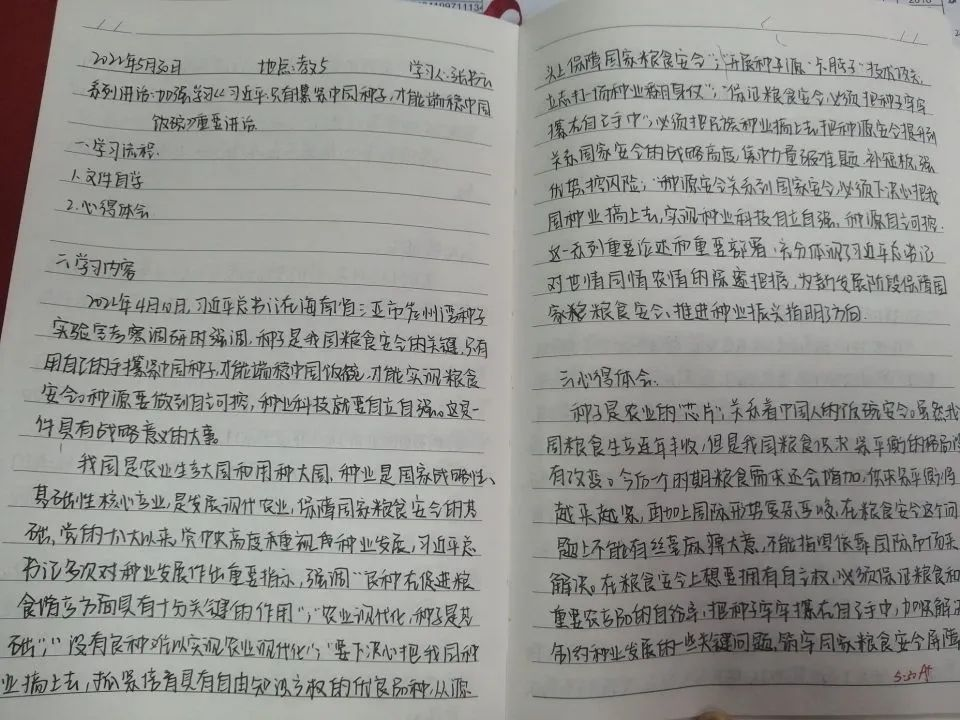 2022年5月30日 地点:教5 学习人:张
系列讲话:加强学习《习近平:只有攥紧中国种子,才能端稳中国
饭碗》重要讲话.
一.学习流程.
1.文件自学
2.心得体会.
二.学习内容
2022年4月10日,习近平总书记在海南省三亚市崖州湾种子
实验室考察调研时强调,种子是我国粮食安全的关键.只有
用自己的手攥紧中国种子,才能端稳中国饭碗,才能实现粮食
安全。种源要做到自主可控,种业科技就要自立自强。这是一
件具有战略意义的大事.
我国是农业生产大国和用种大国,种业是国家战略性、
基础性核心产业,是发展现代农业,保障国家粮食安全的基
础,党的十八大以来,党中央高度重视种业发展,习近平总
书记多次对种业发展作出重要指示,强调“良种在促进粮
食增产方面具有十分关键的作用”;“农业现代化,种子是基
础”;“没有良种难以实现农业现代化”;“要下决心把我国种
业搞上去,抓紧培育具有自由知识产权的优良品种,从源
头上保障国家粮食安全”;“开展种子源‘卡脖子’技术攻关,
立志打一场种业翻身仗”;“保证粮食安全,必须把种子牢牢
攥在自己手中”;必须把民族种业搞上去,把种源安全提升到
关系国家安全的战略高度,集中力量破难题、补短板、强
优势、控风险;“种源安全关系到国家安全,必须下决心把我
国种业搞上去,实现种业科技自立自强、种源自主可控.
这一系列重要论述和重要部署,充分体现了习近平总书记
对世情国情农情的深邃把握,为新发展阶段保障国
家粮食安全、推进种业振兴指明了方向.
三.心得体会.
种子是农业的“芯片”,关系着中国人的饭碗安全。虽然我
国粮食生产连年丰收,但是我国粮食供求紧平衡的格局没
有改变。今后一个时期粮食需求还会增加,供求紧平衡将
越来越紧,再加上国际形势复杂严峻,在粮食安全这个问
题上不能有丝毫放松大意,不能指望依靠国际市场来
解决。在粮食安全上想要拥有自主权,必须保证粮食和
重要农产品的自给率,把种子牢牢攥在自己手中,加快解决
制约种业发展的一些关键问题,筑牢国家粮食安全屏障
5.30